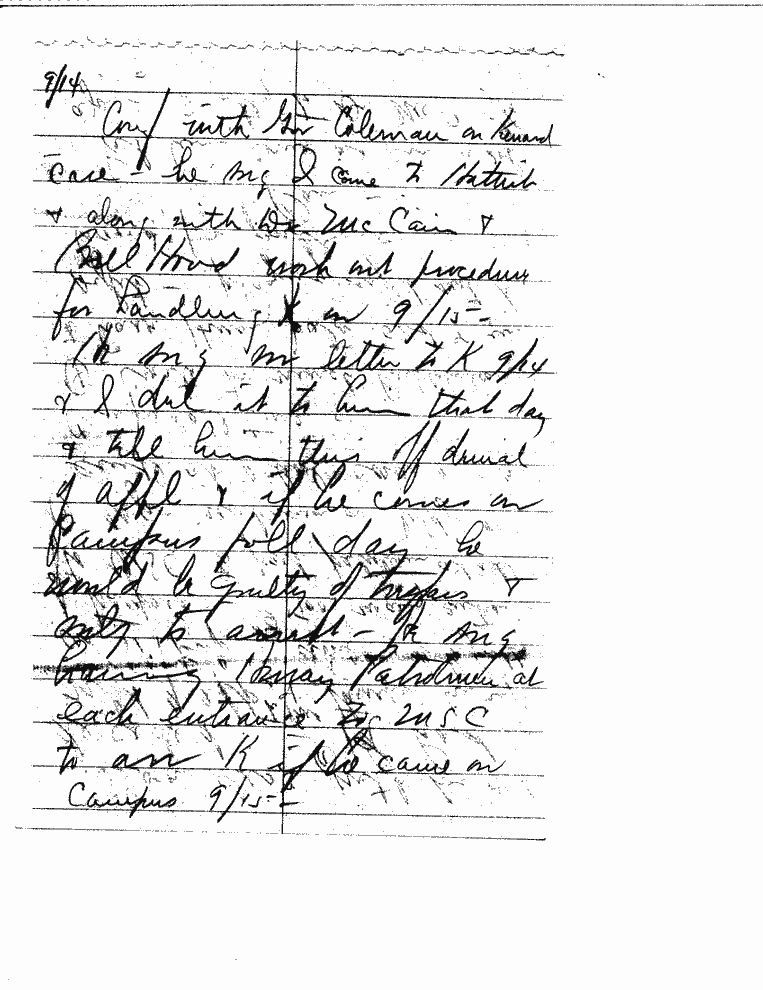 9/14
Conf with Gov Coleman on Kenard
case - he sug I come to Hattisb
& along with Dr Mc Cain &
Bill Hood work out procedure
for handling K on 9/15 -
He sug in letter to K 9/14
& I del it to him that day
& tell him this off denial
of appl & if he comes on
Campus foll day he
would be guilty of trespass &
subj to arrest - He sug
having Hiway Patrolmen at
each entrance to MSC
to arr K if he came on
Campus 9/15 -